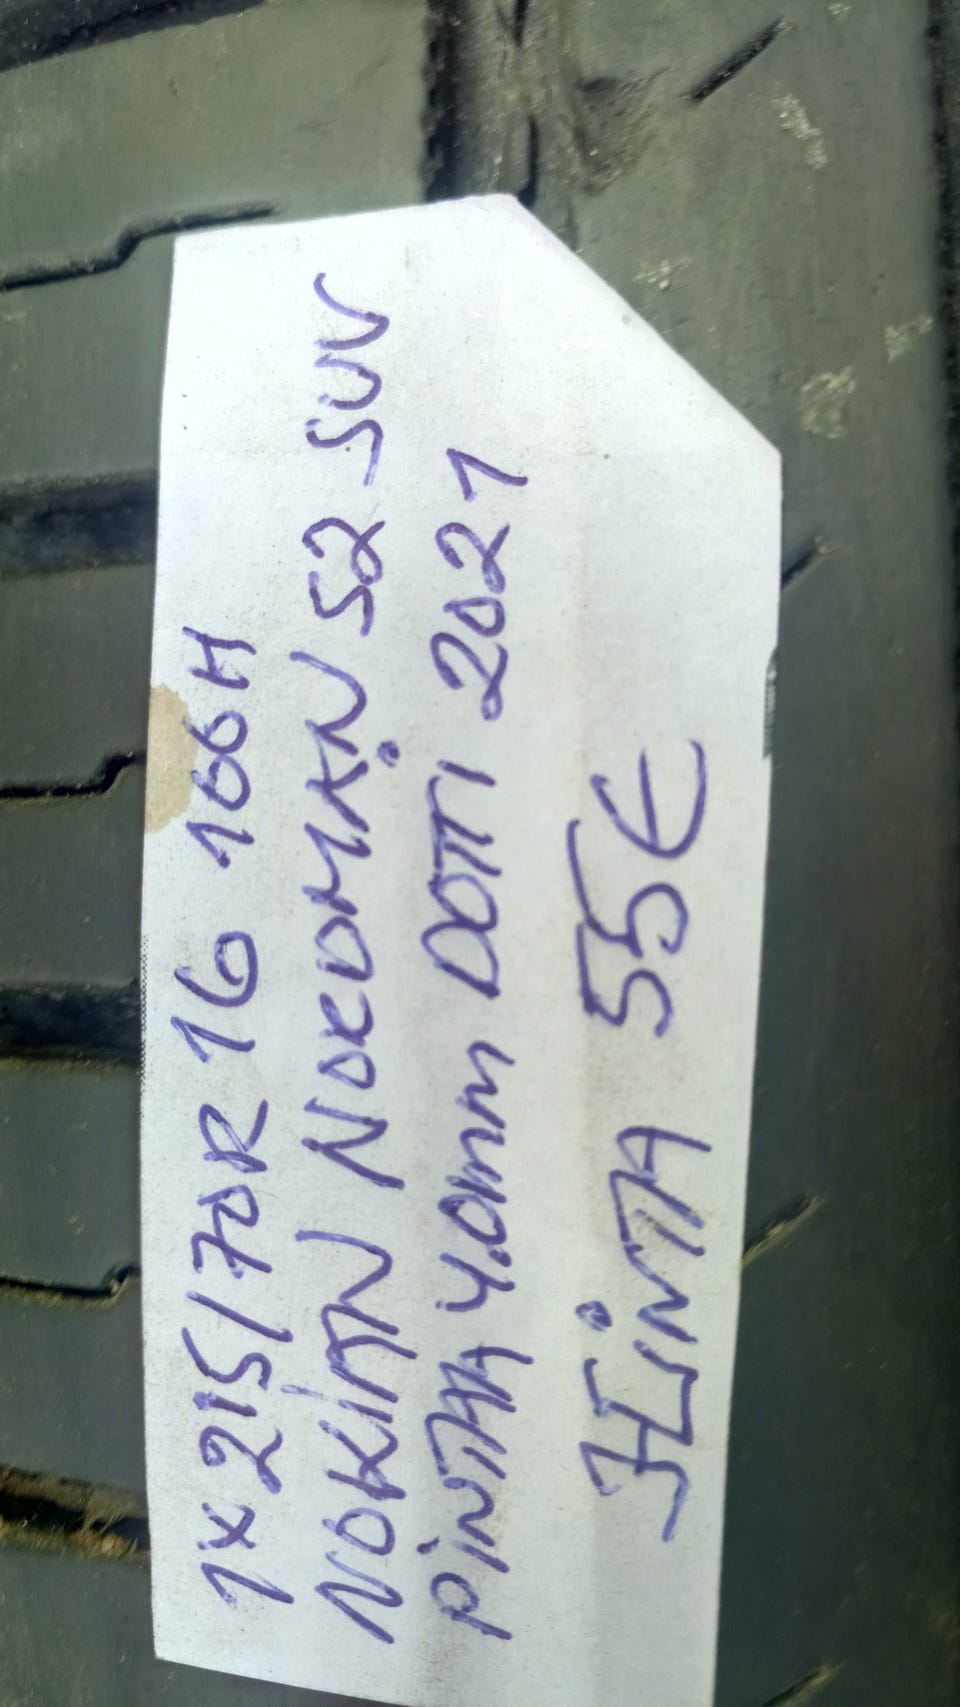 1x 215/70R 16 100H
NOKIAN NORDMAN S2 SUV
PINTA 4.0mm DOTTI 2021
HINTA 55€